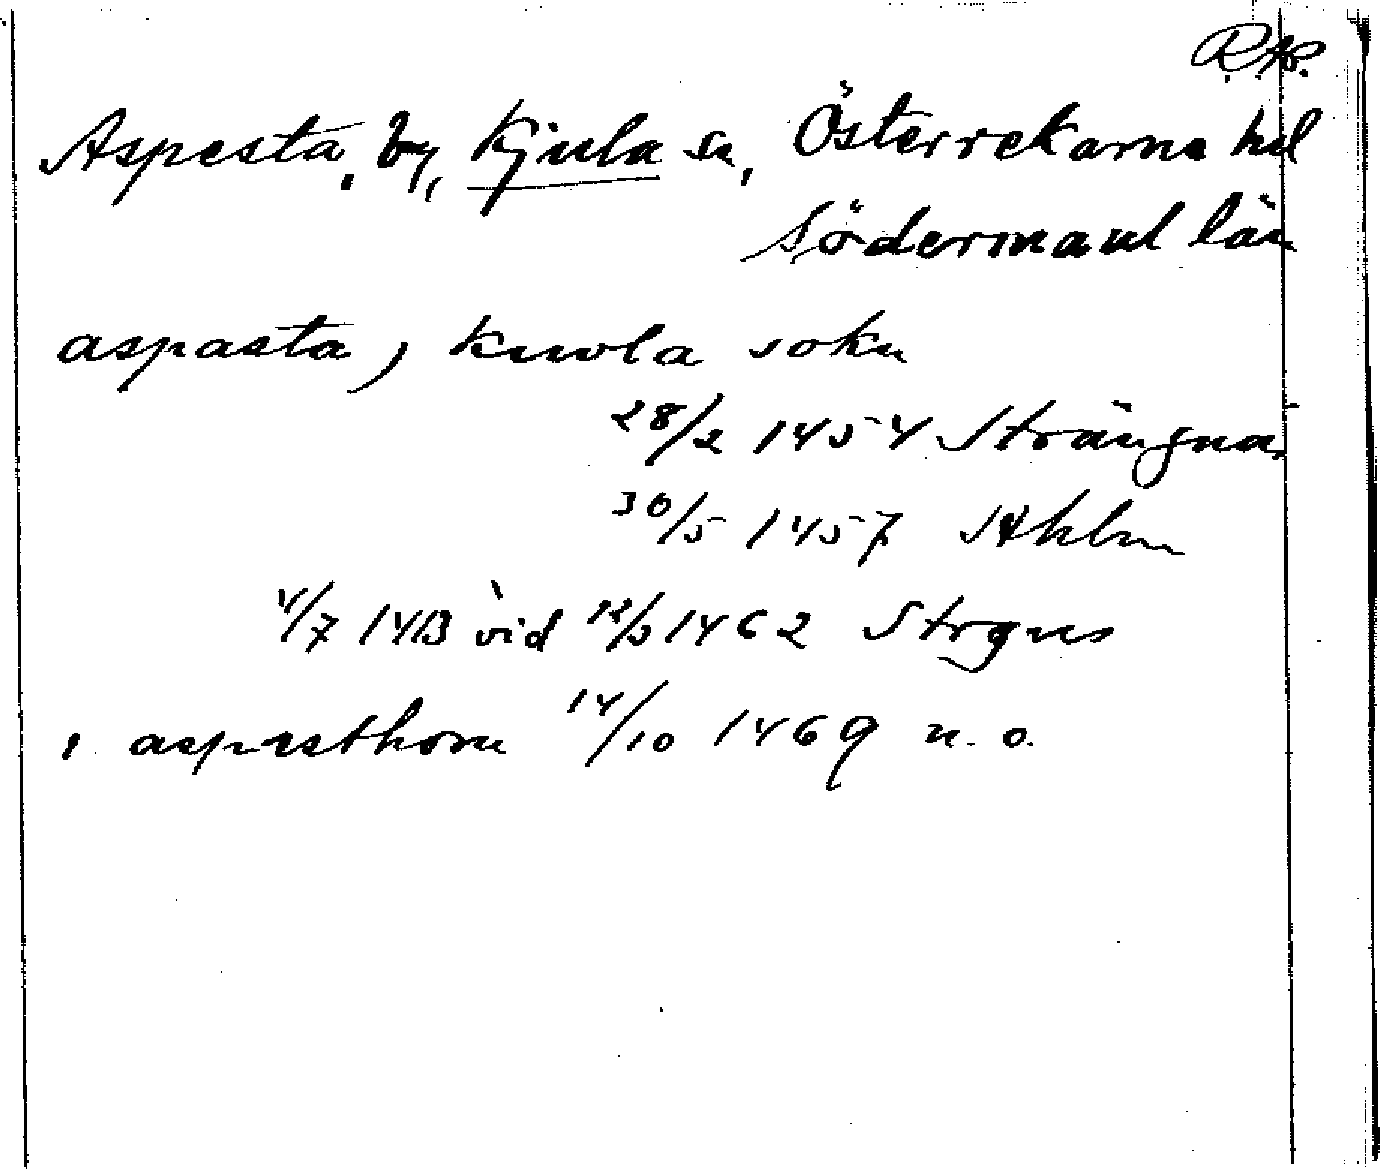 R.Ap.
Aspesta, by, Kjula sn, Österrekarne hd
Södermanl län
aspasta, kiwla sokn
28/2 1454 Strängnäs
30/5 1457 Sthlm
4/7 14B vid 12/3 1462 Strgns
i aspesthom 14/10 1469 u. o.